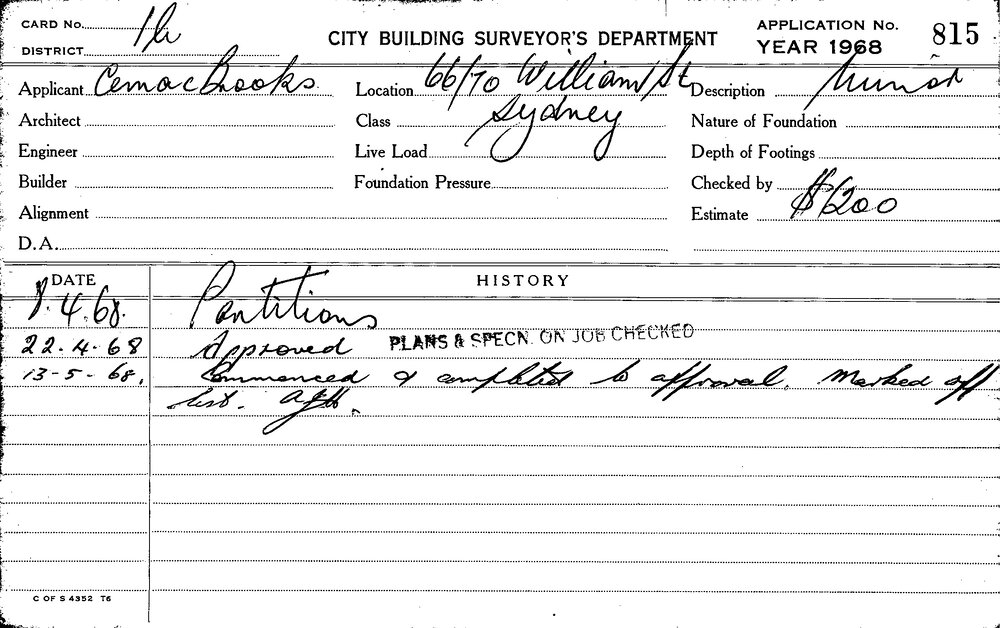 CARD No. 1h
CITY BUILDING SURVEYOR'S DEPARTMENT
APPLICATION No. 815
DISTRICT
YEAR 1968
Applicant Cemac Brooks Location 66/70 William St Description Minor
Architect Class Sydney Nature of Foundation
Engineer Live Load Depth of Footings
Builder Foundation Pressure Checked by
Alignment Estimate $1200
D.A.
DATE HISTORY
8.4.68. Partitions
22.4.68 Approved PLANS & SPECN. ON JOB CHECKED
13-5-68. Commenced & completed to approval. Marked off
list.
C OF S 4352 T6